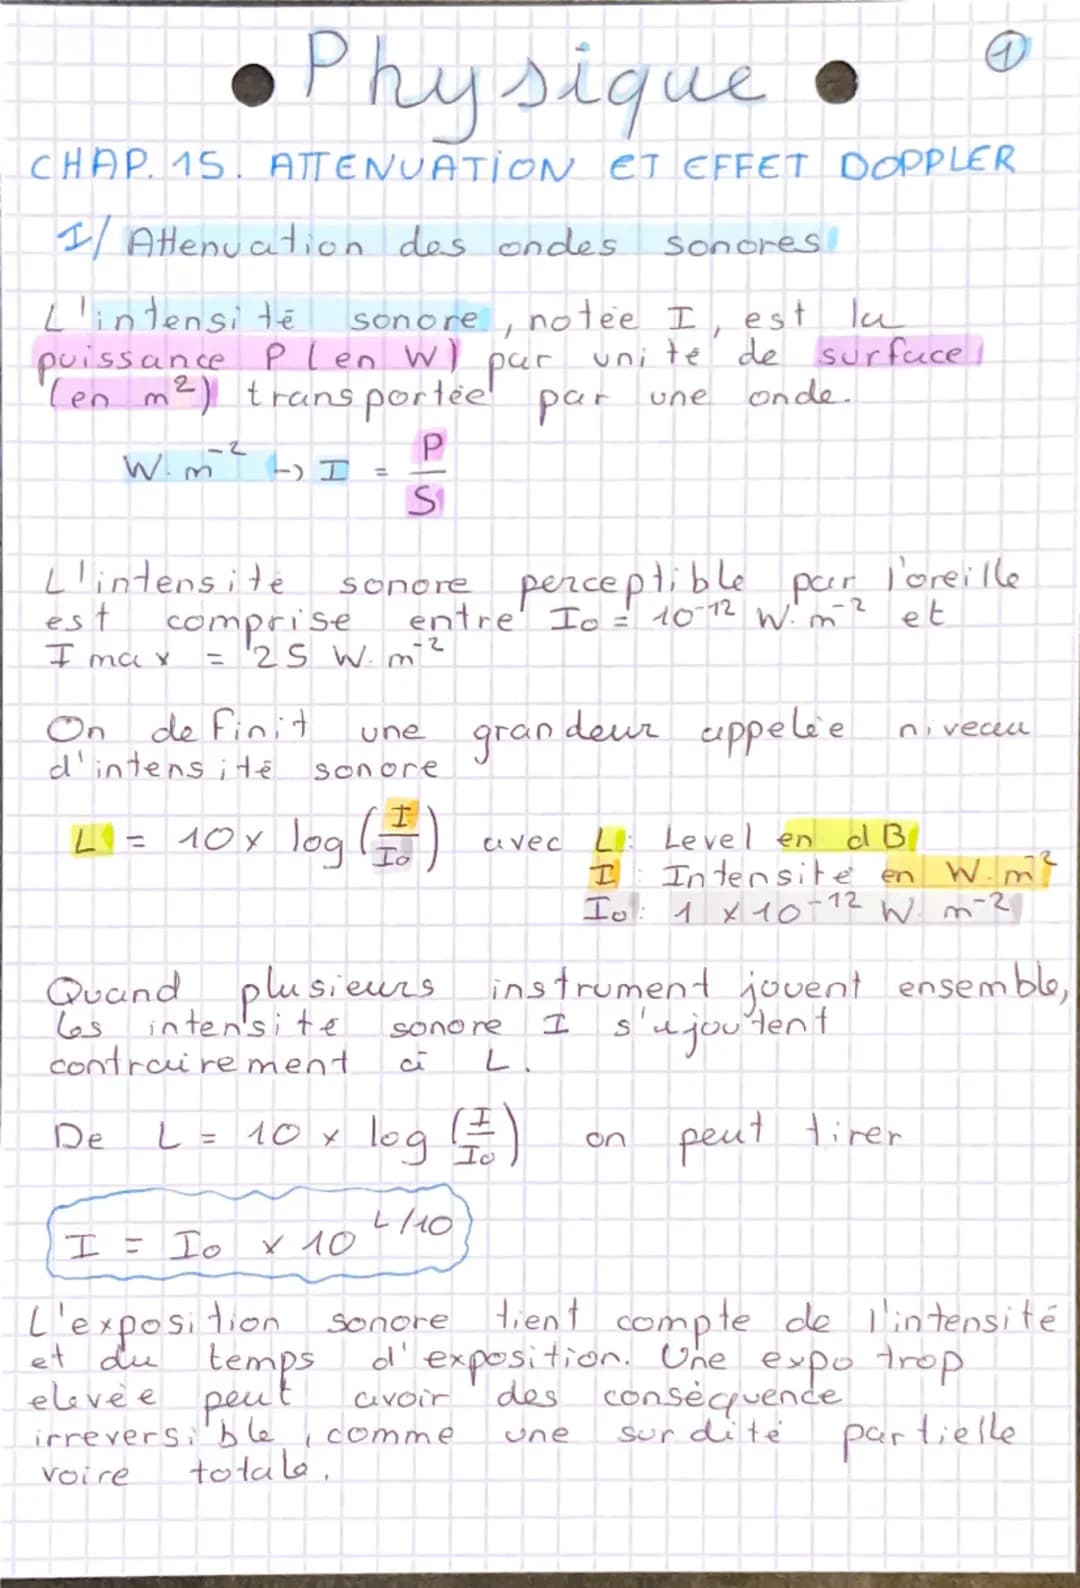 • Physique •
1
CHAP. 15. ATTENUATION ET EFFET DOPPLER
I/ Attenuation des ondes sonores
L'intensité sonore, notée I, est la
puissance P (en W) par unité de surface
(en m²) transportée par une onde.
W.m⁻² ↪ I = P/S
L'intensité sonore perceptible par l'oreille
est comprise entre I₀ = 10⁻¹² W.m⁻² et
I max = 25 W.m⁻²
On definit une grandeur appelée niveau
d'intensité sonore
L = 10 x log (I/I₀) avec L: Level en dB
I : Intensité en W.m⁻²
I₀: 1 x 10⁻¹² W.m⁻²
Quand plusieurs instrument jouent ensemble,
les intensité sonore I s'ajoutent
contrairement à L.
De L = 10 x log (I/I₀) on peut tirer
I = I₀ x 10^L/10
L'exposition sonore tient compte de l'intensité
et du temps d'exposition. Une expo trop
elevée peut avoir des conséquence
irreversible, comme une surdité partielle
voire totale.